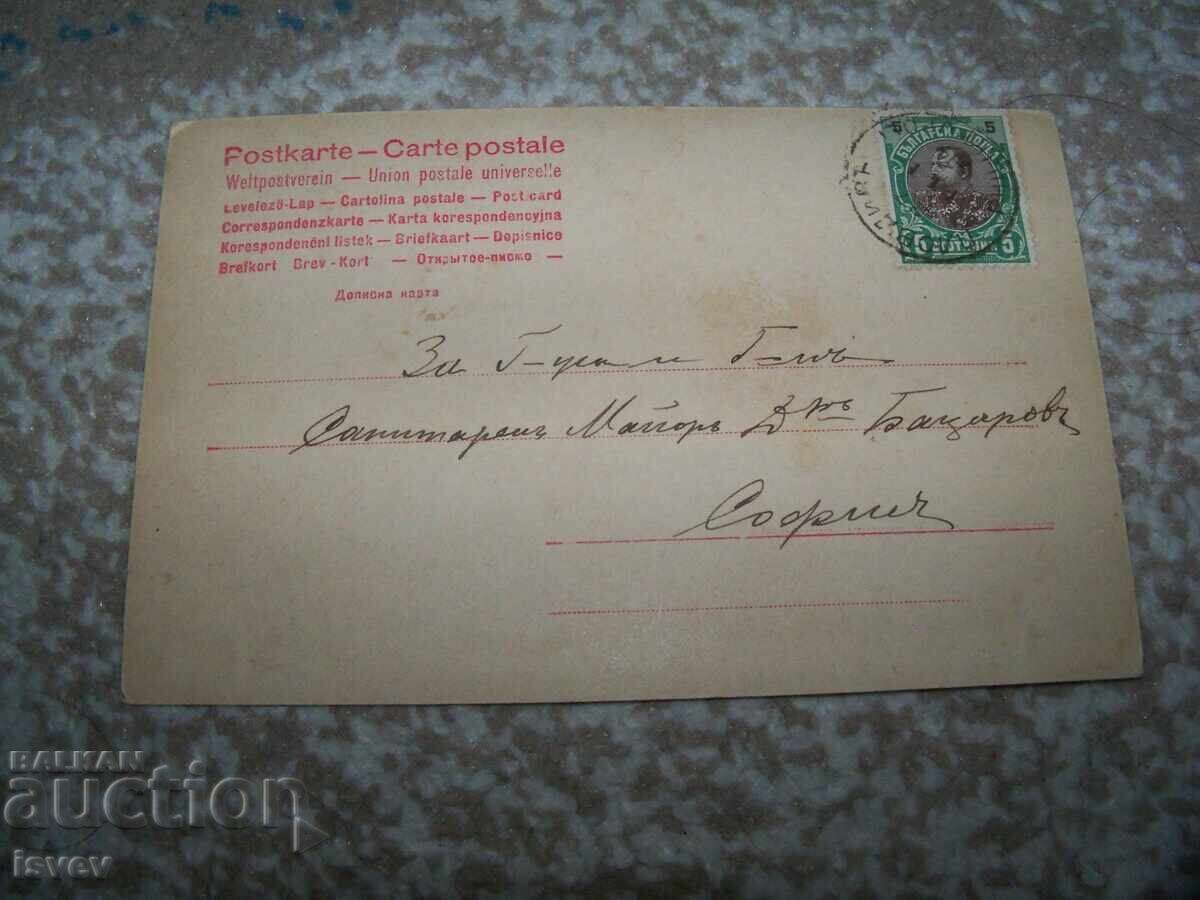 Postkarte — Carte postale
Weltpostverein — Union postale universelle
Levelező-Lap — Cartolina postale — Post card
Correspondenzkarte — Karta korespondencyjna
Korespondenční listek — Briefkaart — Dopisnice
Brefkort Brev-Kort — Открытое-писмо —
Дописна карта
5 5
БЪЛГАРСКА ПОЩА
5 СТОТИНКИ 5
За Г-жа и Г-нъ
Санитаренъ Майоръ Д-ръ Бацаровъ
София
BALKAN
auction
isvev